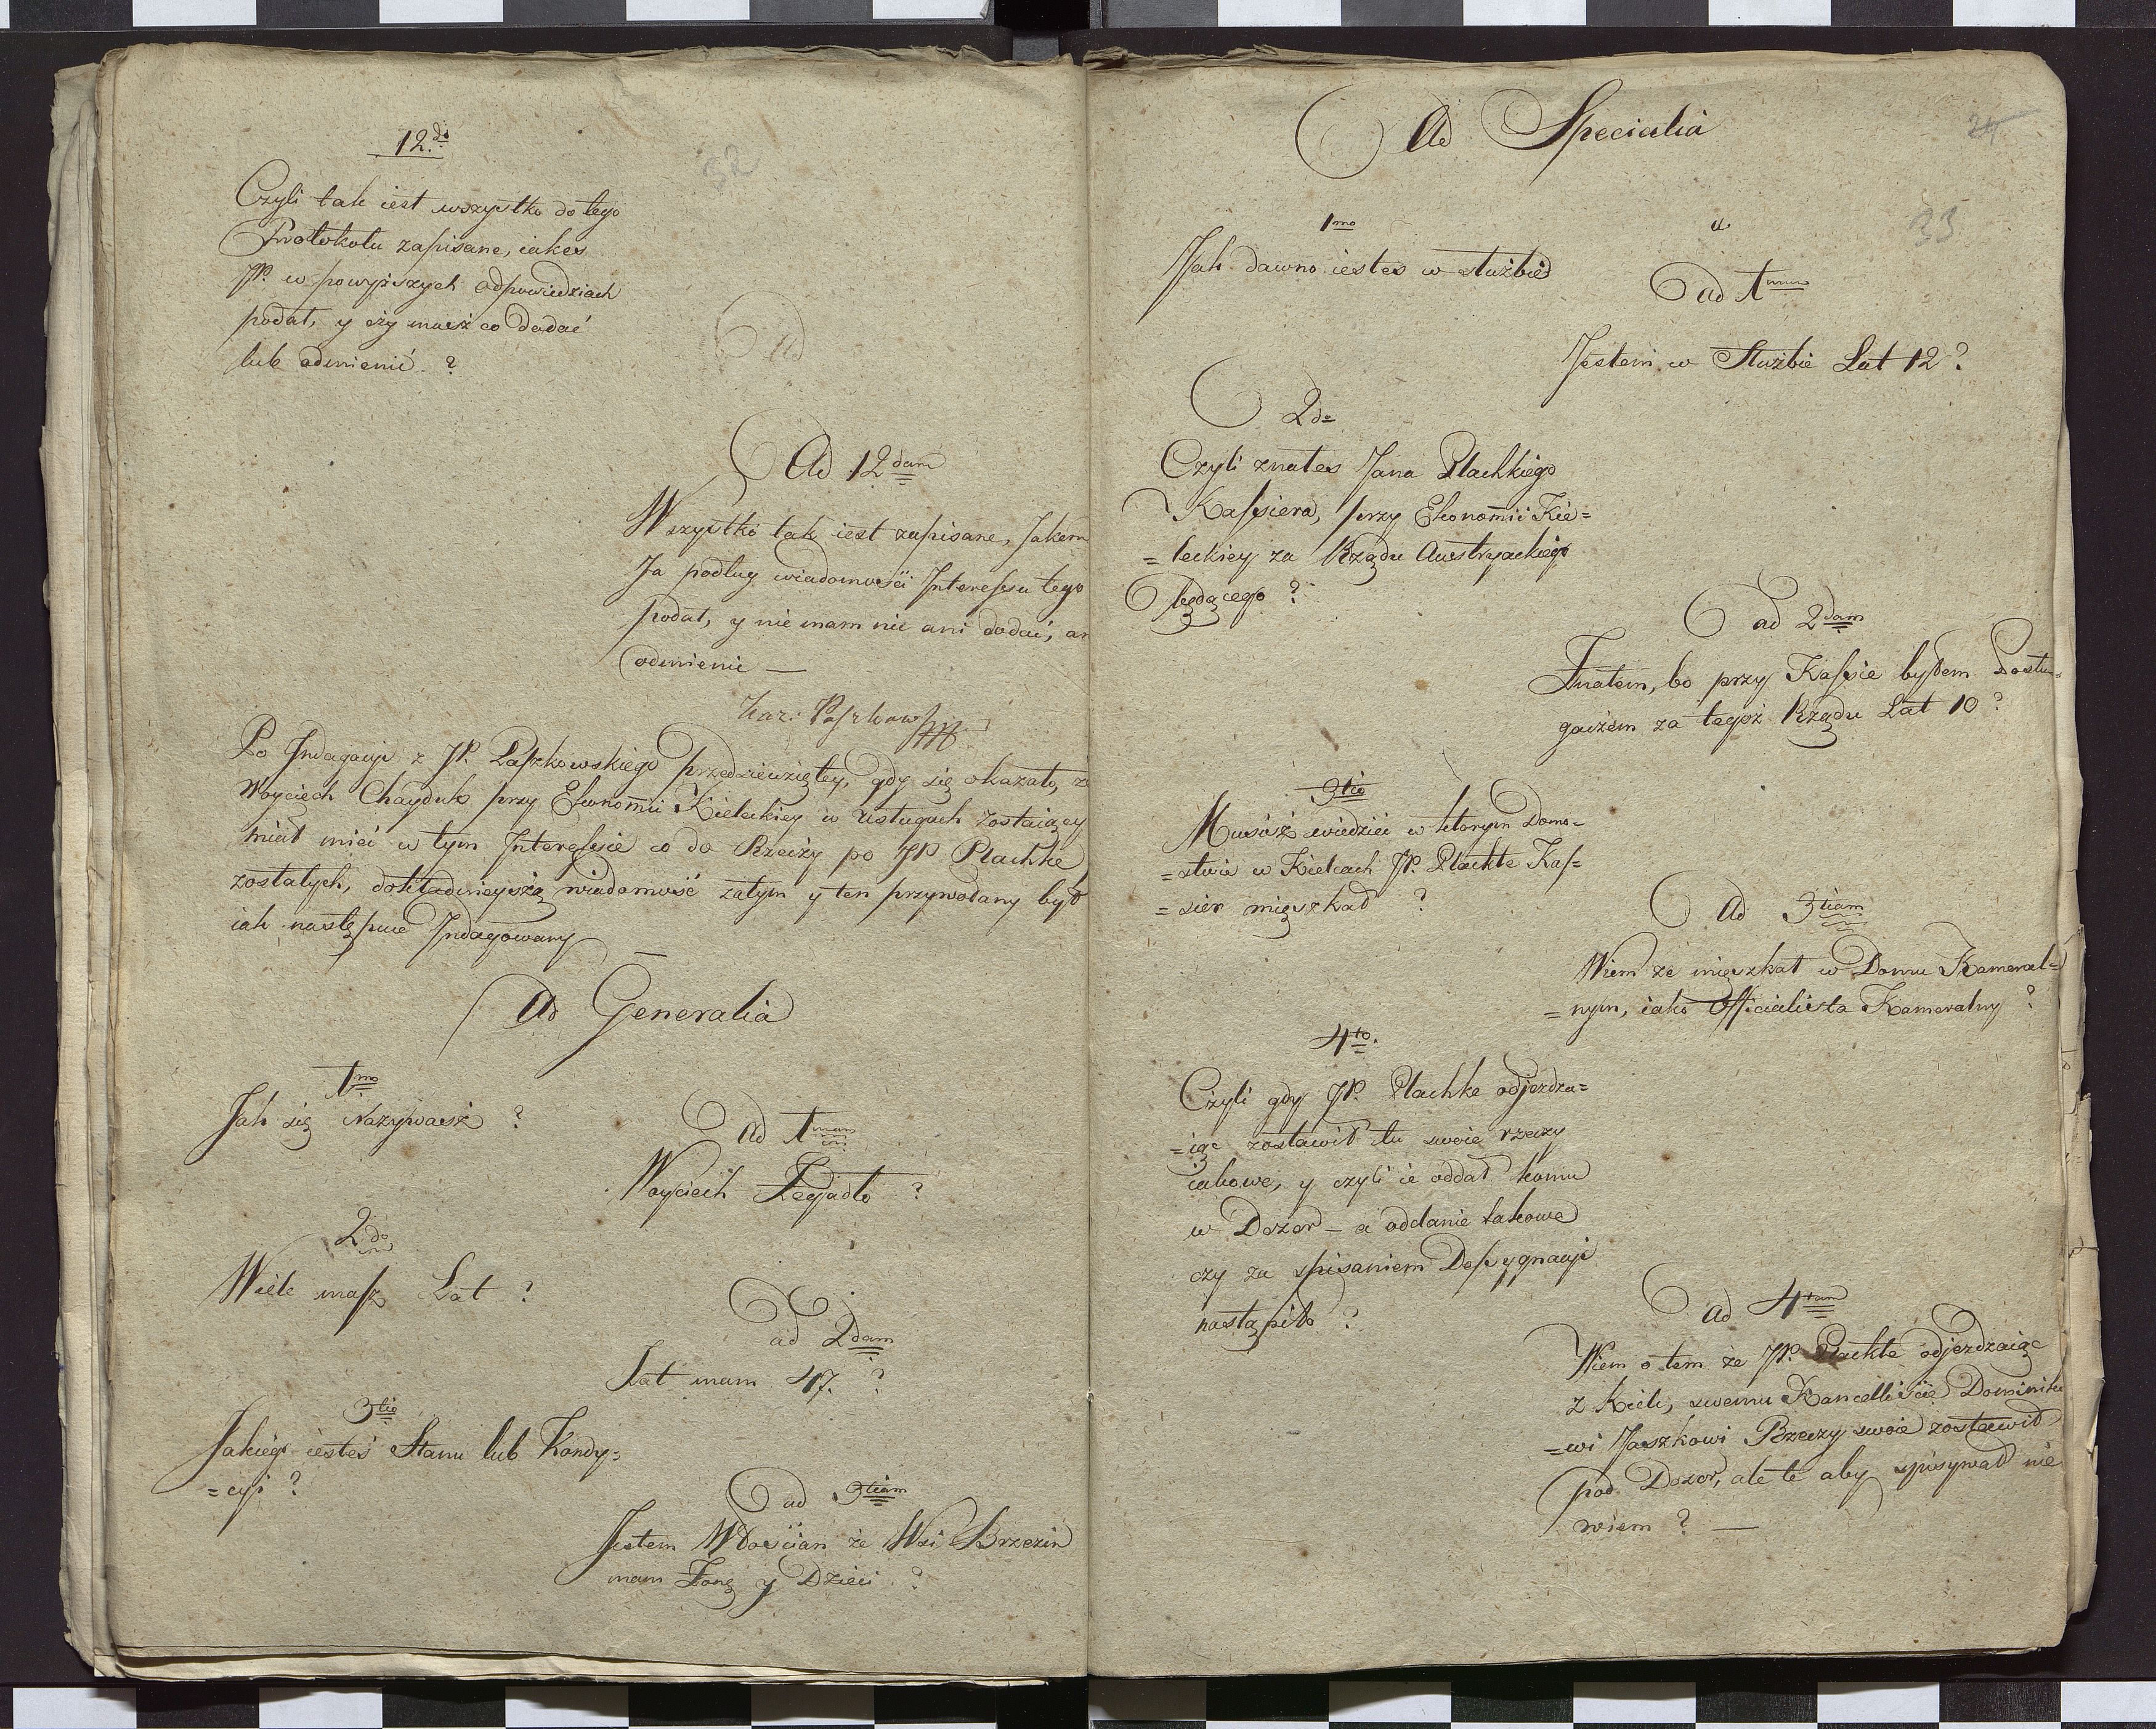 12do
32
Czyli tak iest wszystko do tego
Protokołu zapisane, iakeś
JP. w powyższych odpowiedziach
podał, y czy masz co dodać
lub odmienić ?
Ad
Ad 12dam
Wszystko tak iest zapisane, Jakem
Ja podług wiadomości Interessu tego
podał, y nie mam nic ani dodać, an
odmienić —
Kaz: Paszkows
Po Indagacyi z JP. Paszkowskiego przedsiewziętey, gdy się okazało, ż
Woyciech Chayduk przy Ekonomii Kieleckiey w usługach zostaiący
miał mieć w tym Interessie co do Rzeczy po JP Plachke
zostałych, dokładnieyszą wiadomość zatym y ten przywołany był
iak następuie Indagowany
Ad Generalia
1mo
Jak się Nazywasz ?
Ad 1mum
Woyciech Zegadło ?
2do
Wiele masz Lat ?
ad 2dam
Lat mam 47. ?
3tio
Jakiego iesteś Stanu lub Kondy=
=cyi ?
ad 3tiam
Jestem Włościan ze Wsi Brzezin
mam Żonę y Dzieci ?
Ad Specialia
24
33
1mo
Jak dawno iesteś w służbie
a
ad 1mum
Jestem w Służbie Lat 12 ?
2do
Czyli znałeś Jana Plachkiego
Kassiera, przy Ekonomii Kie=
=leckiey za Rządu Austryackiego
będącego ?
ad 2dam
Znałem, bo przy Kassie byłem Posłu=
gaczem za tegoż Rządu Lat 10 ?
3tio
Musisz wiedzieć w którym Domo=
=stwie w Kielcach JP. Plachke Kas=
=sier mięszkał ?
Ad 3tiam
Wiem że mięszkał w Domu Kameral=
=nym, iako Officialista Kameralny ?
4to.
Czyli gdy JP. Plachke odjezdza=
=iąc zostawił tu swoie rzeczy
iakowe, y czyli ie oddał komu
w Dozor — a oddanie takowe
czy za spisaniem Dessygnacyi
nastąpiło ?
ad 4tam
Wiem o tem że JP. Plachke odjezdzaiąc
z Kielc, swemu Kancelliście Dominiko
=wi Jaszkowi Rzeczy swoie zostawił
pod Dozor, ale te aby spisywał nie
wiem ? —